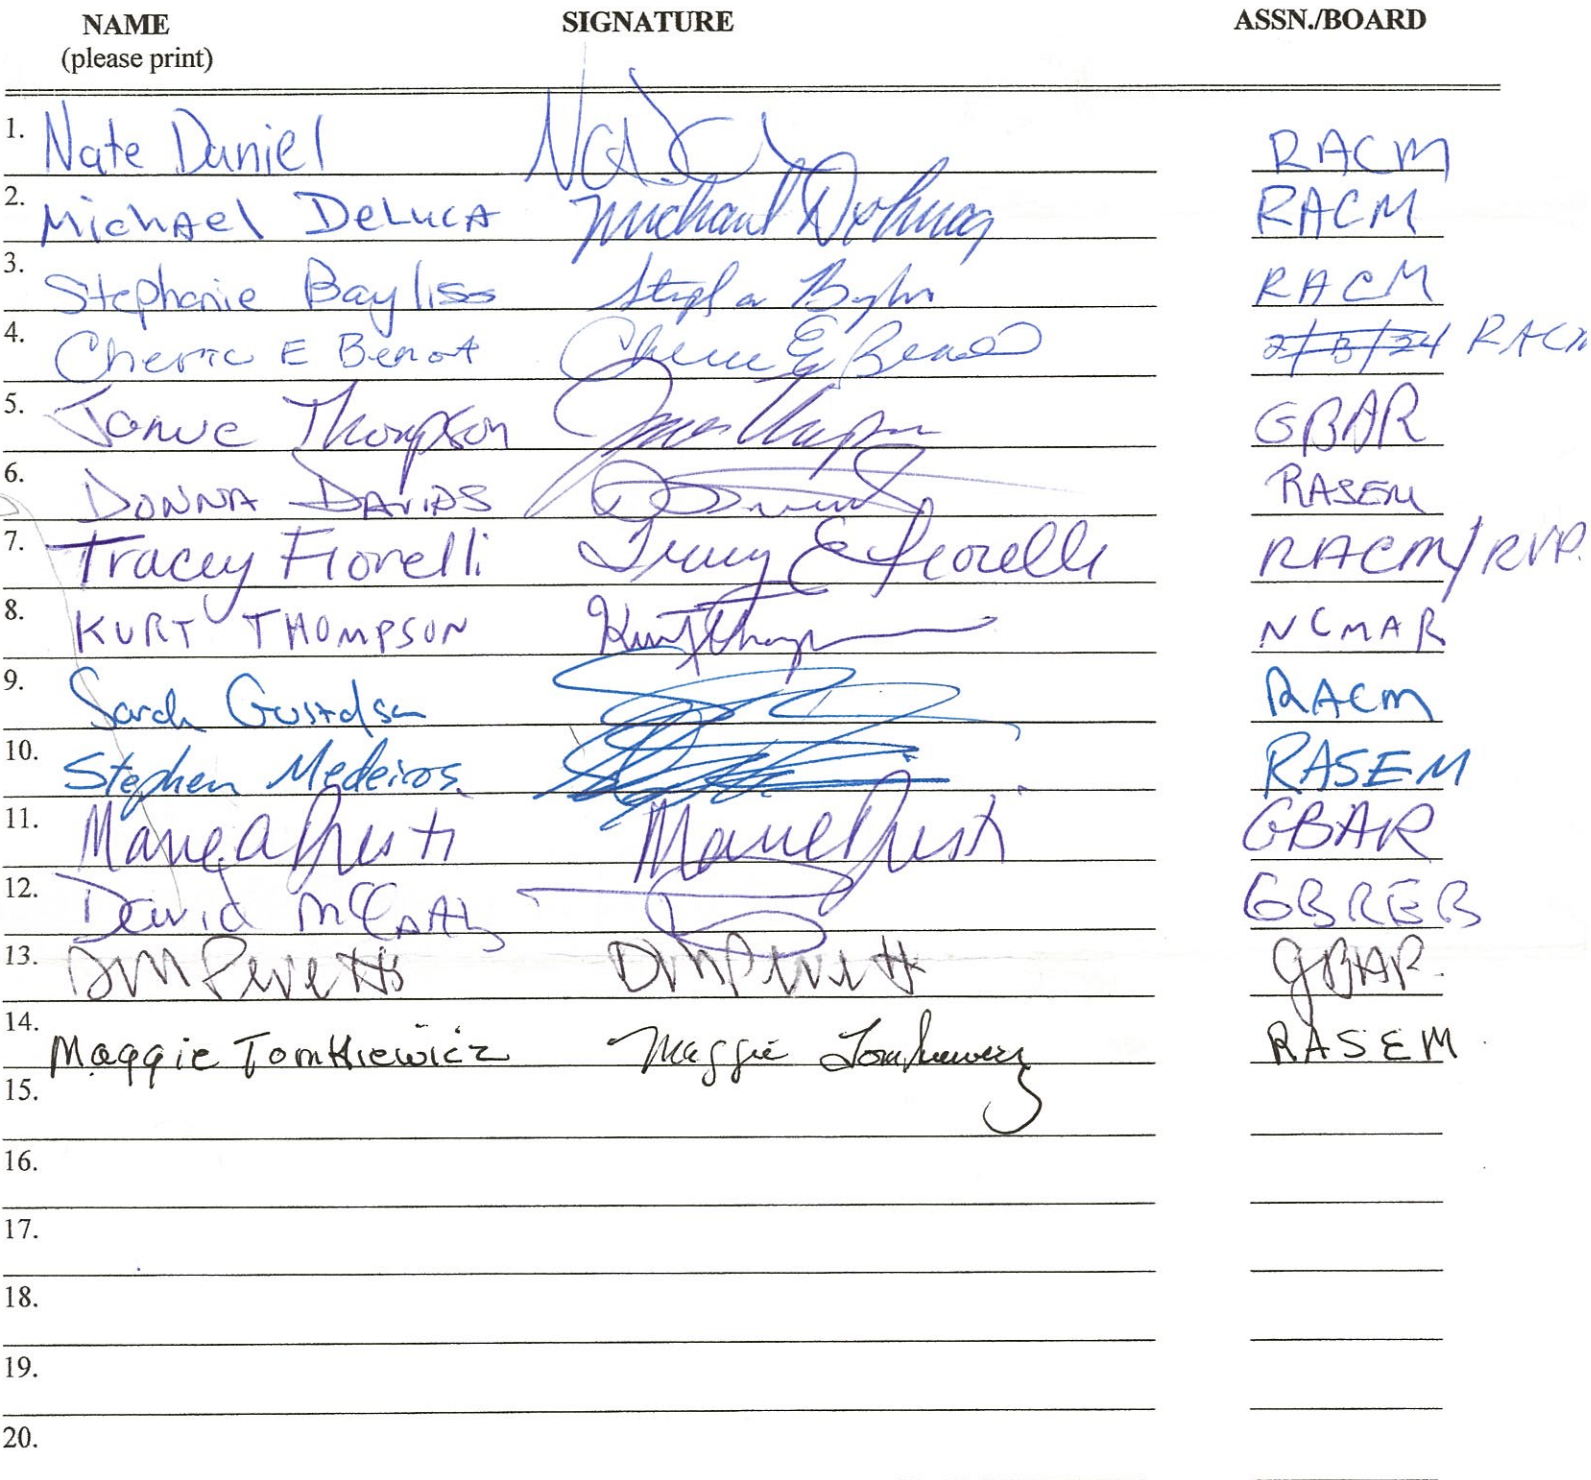 NAME SIGNATURE ASSN./BOARD
(please print)
1. Nate Daniel RACM
2. Michael DeLuca Michael DeLuca RACM
3. Stephanie Bayliss RACM
4. Cherie E Benoit 2/5/24 RACM
5. Thompson GBAR
6. DONNA DAVIDS RASEM
7. Tracey Fiorelli Tracey E Fiorelli RACM/RVP.
8. KURT THOMPSON Kurt Thompson NCMAR
9. Sarah Gustafson RACM
10. Stephen Medeiros RASEM
11. Marie Presti Marie Presti GBAR
12. David McCarthy GBREB
13. GBAR
14. Maggie Tomkiewicz Maggie Tomkiewicz RASEM
15.
16.
17.
18.
19.
20.